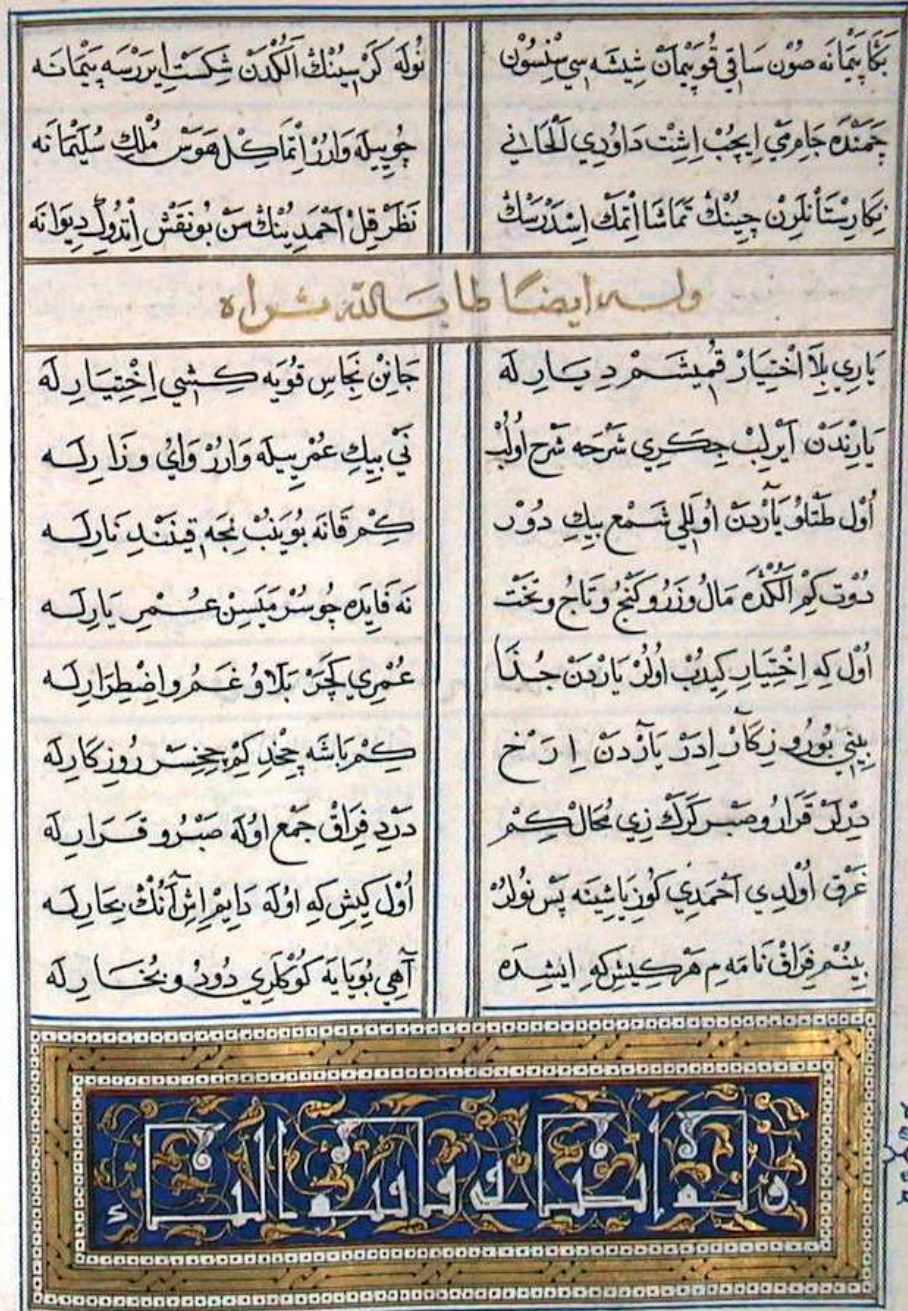 بَكَا پَيْمَانَه صُونْ سَاقِي قُو پَيْمَانْ شِيشَه سِي سِنْسُونْ نُولَه كَرْ سِينُنْكْ اَلْكُدَنْ شِكَسْت اِيرَرْسَه پَيْمَانَه
چَمَنْدَه جَامِ مَيْ اِيچُبْ اِشِتْ دَاوُدِي اَلْحَانِي چُو يِيلَه وَارُرْ اِتْمَاكِلْ هَوَسْ مُلْكِ سُلَيْمَانَه
نِكَارِسْتَانْلَرِنْ چِينُنْكْ تَمَاشَا اِتْمَكْ اِسْدَرْسَكْ نَظَرْ قِلْ اَحْمَدِينُنْكْ سَنْ بُو نَقْش اِتْدُوكِ دِيوَانَه
وله ايضًا طاب الله ثراه
يَارِي بِلَا اِخْتِيَارْ قُمِيشَمْ دِيَارِ لَه جَانِنْ نِجَاسِ قُويَه كِشِي اِخْتِيَارِ لَه
يَارِنْدَنْ اَيْرِلِبْ جِكَرِي شَرْحَه شَرْح اولُبْ نَيْ بِيكِ عُمْر بِيلَه وَارُرْ وَايُ و زَارِلَه
اُول طَتْلُو يَارْدَنْ اوَلَلِي شَمْع بِيكِ دُورْ كِمْ قَانَه بُويَنُبْ نِجَه قِينَنْدِ نَارِلَه
دُوت كِمْ اَلْكُدَه مَالُ وزَرُ وكَنْجُ وتَاجُ وتَخْت نَه فَايِدَه چُو سُرْمَيَسِنْ عُمْرِ يَارِلَه
اُول كِه اِخْتِيَارِ كِيدُبْ اولُرْ يَارْدَنْ جُدَا عُمْرِي كَچَرْ بَلَاوُ غَمُ واِضْطِرَارِلَه
بِنِي بُو رُوزِكَارْ اِدَرْ يَارْدَنْ اِرَخ كِمْ بَاشَه چِخْدِ كِمْ چِخِسَرْ رُوزِكَارِلَه
دِرْلَرْ قَرَارُ وصَبْر كَرَكْ زِي مُحَالْ كِمْ دَرْدِ فِرَاقْ جَمْع اوُلَه صَبْرُ و قَرَارِلَه
غَرْق اُولْدِي اَحْمَدِي كُوزِ يَاشِينَه پَسْ نُولُرْ اُول كِيشِ كِه اوُلَه دَايِمْ اِش اَنُكْ بِحَارِلَه
بِنُمْ فِرَاقْ نَامَه م هَرْ كِيشِ كِه ايشِدَه آهِي بُويَايَه كُوكْلَرِي دُودْ و بُخَارِ لَه
وله ايضا فى قافية اليـ